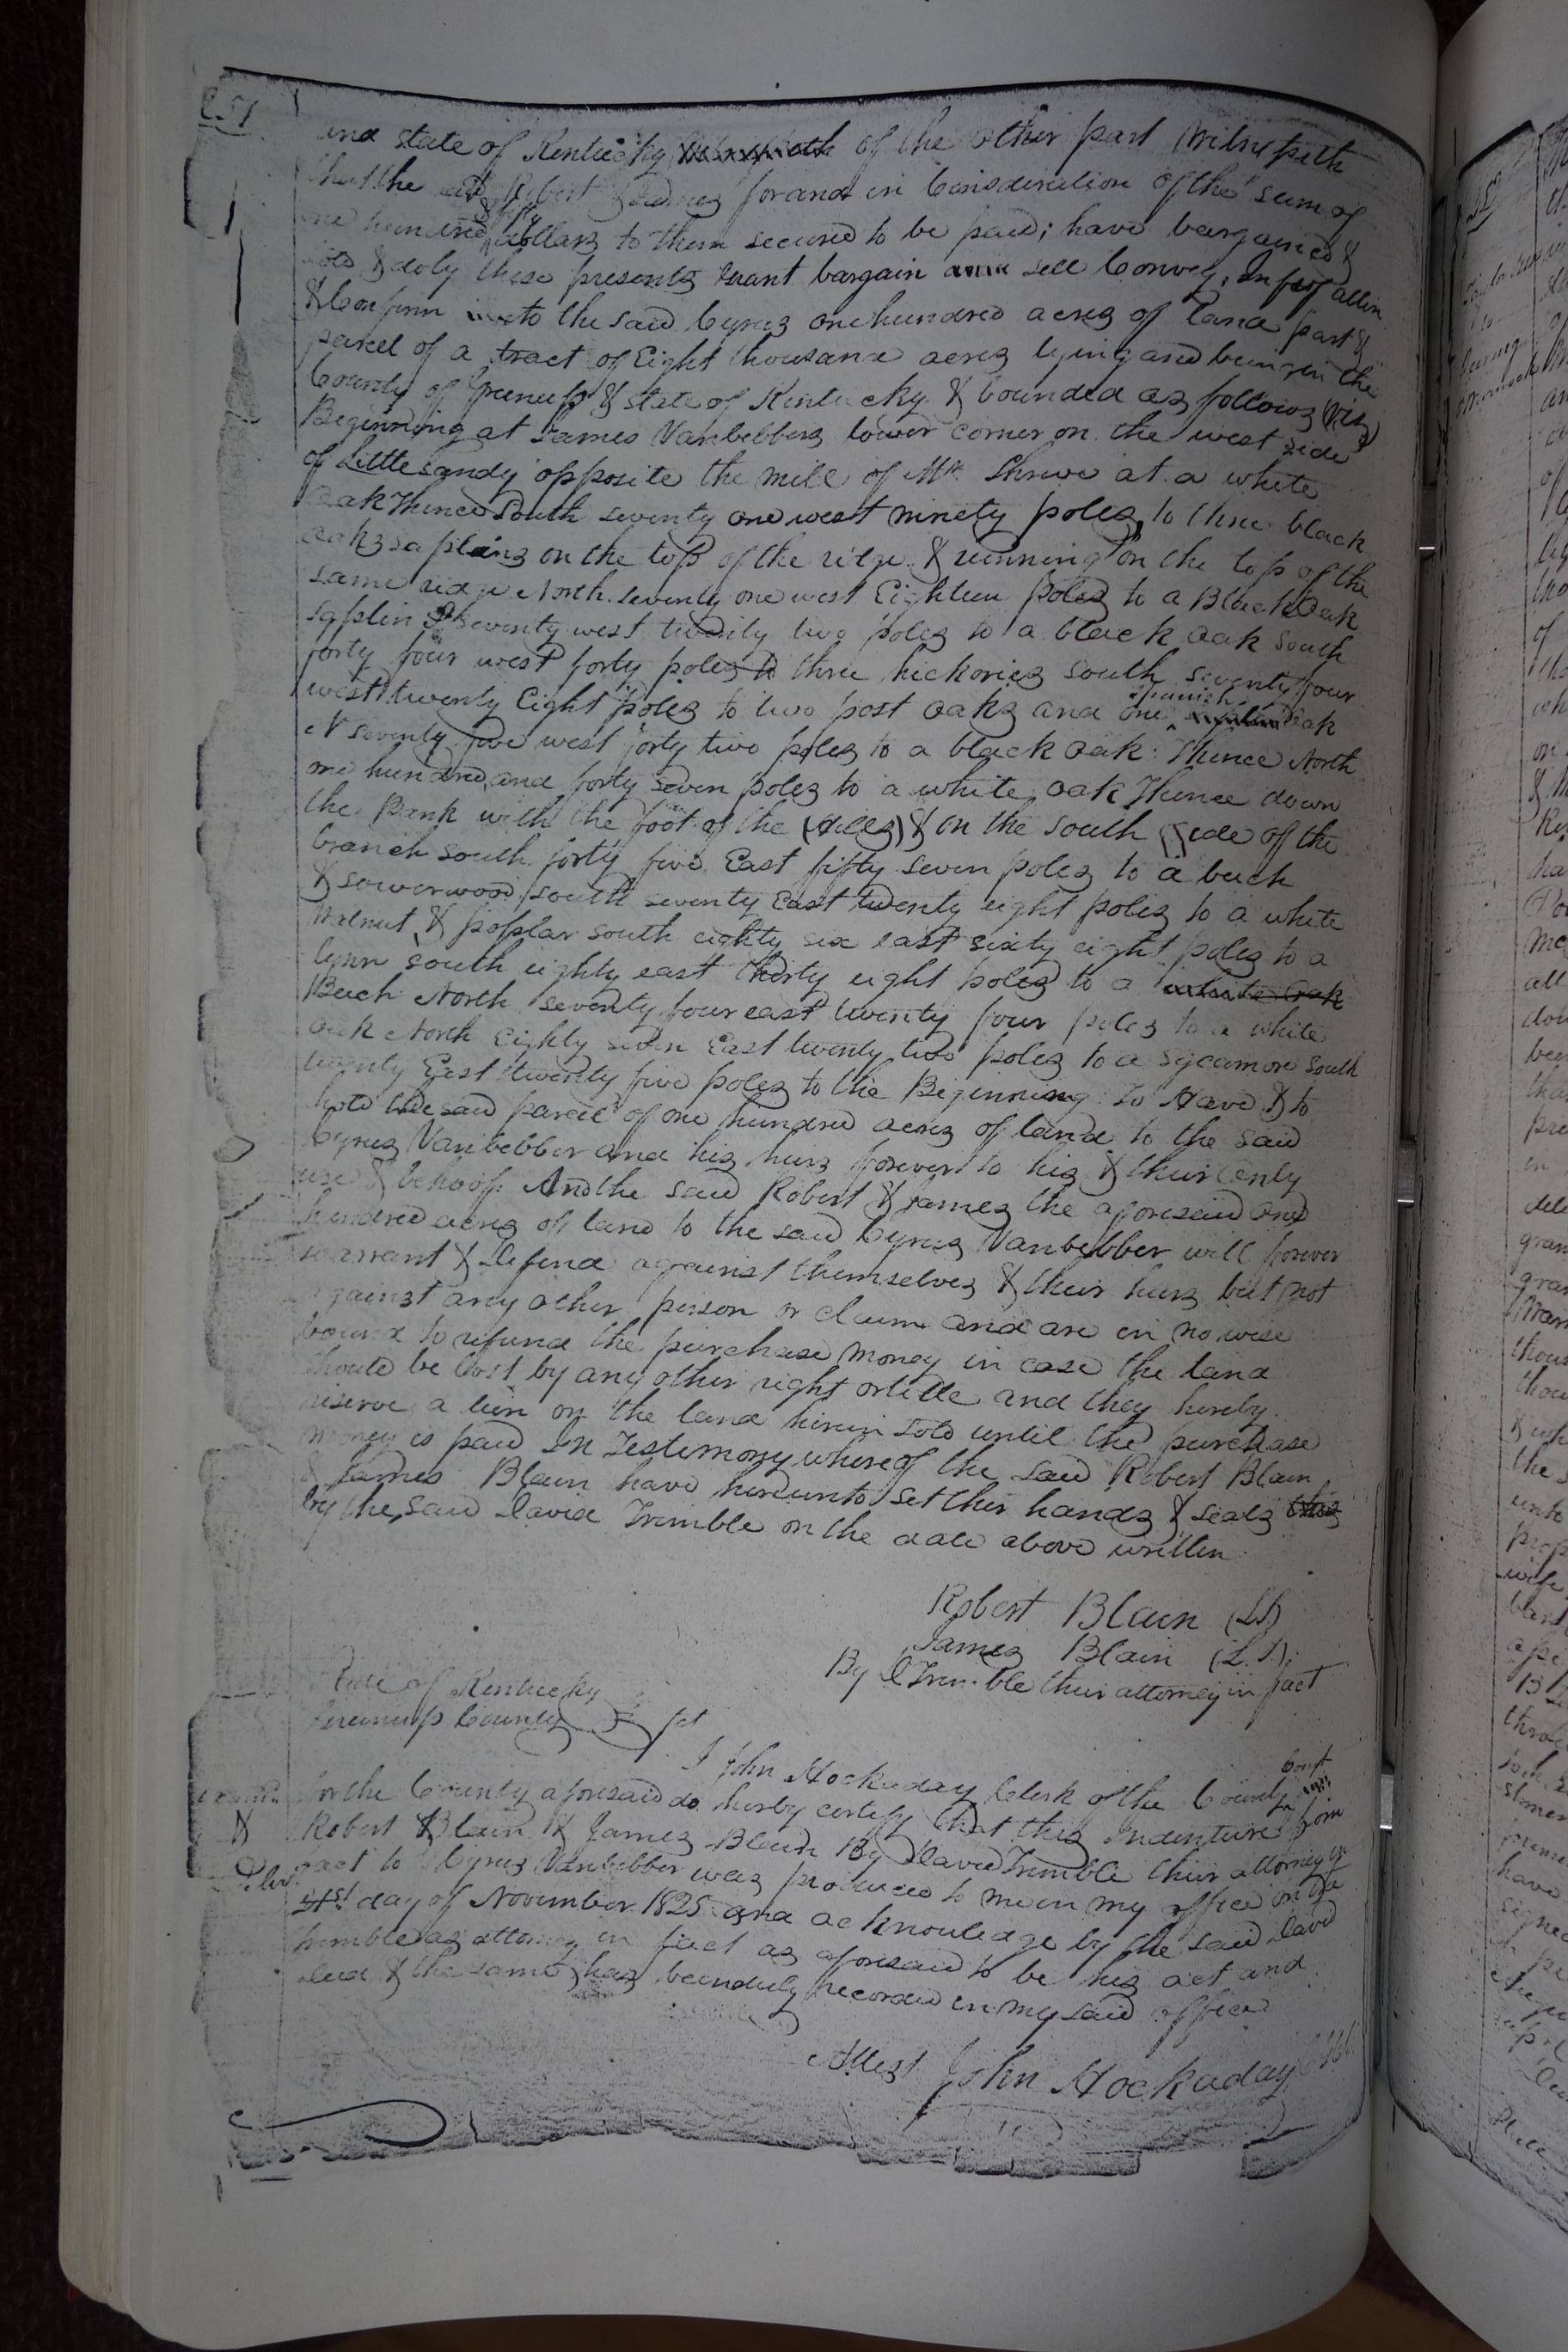 251
and state of Kentucky of the other part Witnesseth
that the said Robert & James for and in Considination of the sum of
one hundred & fifty dollars to them secured to be paid; have bargained &
sold & doby these presents Grant bargain sell Convey,
& Confirm unto the said Cyrus one hundred acres of Land part &
parcel of a tract of Eight thousand acres lying and being in the
County of Greenup & state of Kentucky & bounded as follows (viz)
Beginning at James Vanbebbers lower corner on the west side
of Little sandy opposite the mill of Mr. Shreve at a white
oak Thence South seventy one west ninety poles, to three black
oaks saplins on the top of the ridge & running on the top of the
same ridge North seventy one west Eighteen poles to a Black Oak
saplin S seventy west twenty two poles to a black oak South
forty four west forty poles to three hickories south seventy four
west twenty Eight poles to two post oaks and one spanish oak
N seventy five west forty two poles to a black oak: Thence North
one hundred and forty seven poles to a white oak Thence down
the Bank with the foot of the (hills) & on the south side of the
branch south forty five East fifty seven poles to a beech
& sowerwood south seventy East twenty eight poles to a white
Walnut & poplar south eighty six east sixty eight poles to a
lynn south eighty east thirty eight poles to a white oak
Beech North seventy four east twenty four poles to a white
oak North Eighty seven East twenty two poles to a sycamore South
twenty East twenty five poles to the Beginning To Have & to
hold the said parcel of one hundred acres of land to the said
Cyrus Vanbebber and his heirs forever to his & their only
use & behoof. And the said Robert & James the aforesaid one
hundred acres of land to the said Cyrus Vanbebber will forever
warrant & Defend against themselves & their heirs but not
against any other person or claim and are in no wise
bound to refund the purchase money in case the land
should be lost by any other right or title and they hereby
reserve a lien on the land herein sold until the purchase
money is paid In Testimony whereof the said Robert Blain
& James Blain have hereunto set their hands & seals this
by the said David Trimble on the date above written
Robert Blain (LS)
James Blain (L.S.)
By D Trimble their attorney in fact
State of Kentucky
Greenup County Sct
I John Hockaday Clerk of the County Court
for the County aforesaid do hereby certify that this Indenture from
& Robert Blain & James Blain By David Trimble their attorney in
fact to Cyrus Vanbebber was produced to me in my office on the
day of November 1825 and acknowledge by the said David
Trimble as attorney in fact as aforesaid to be his act and
deed & the same has been duly recorded in my said office
Attest John Hockaday